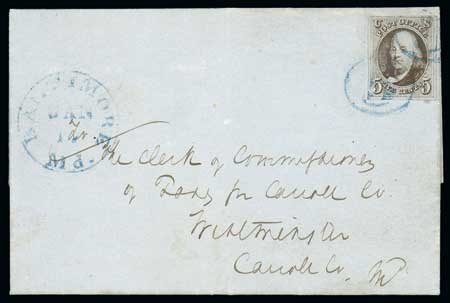 POST OFFICE
5 FIVE CENTS 5
BALTIMORE Md.
JAN
5
The Clerk of Commissioners
of Taxes for Carroll Co.
Westminster
Carroll Co. Md